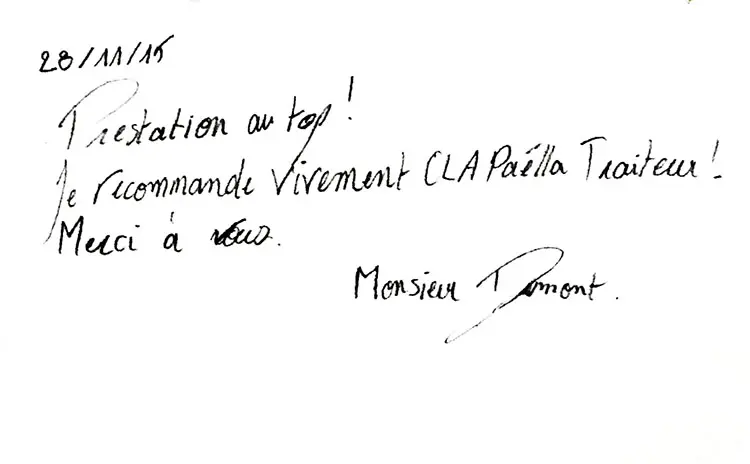 28/11/15
Prestation au top !
Je recommande vivement CLA Paëlla Traiteur !
Merci à vous.
Monsieur Dumont.